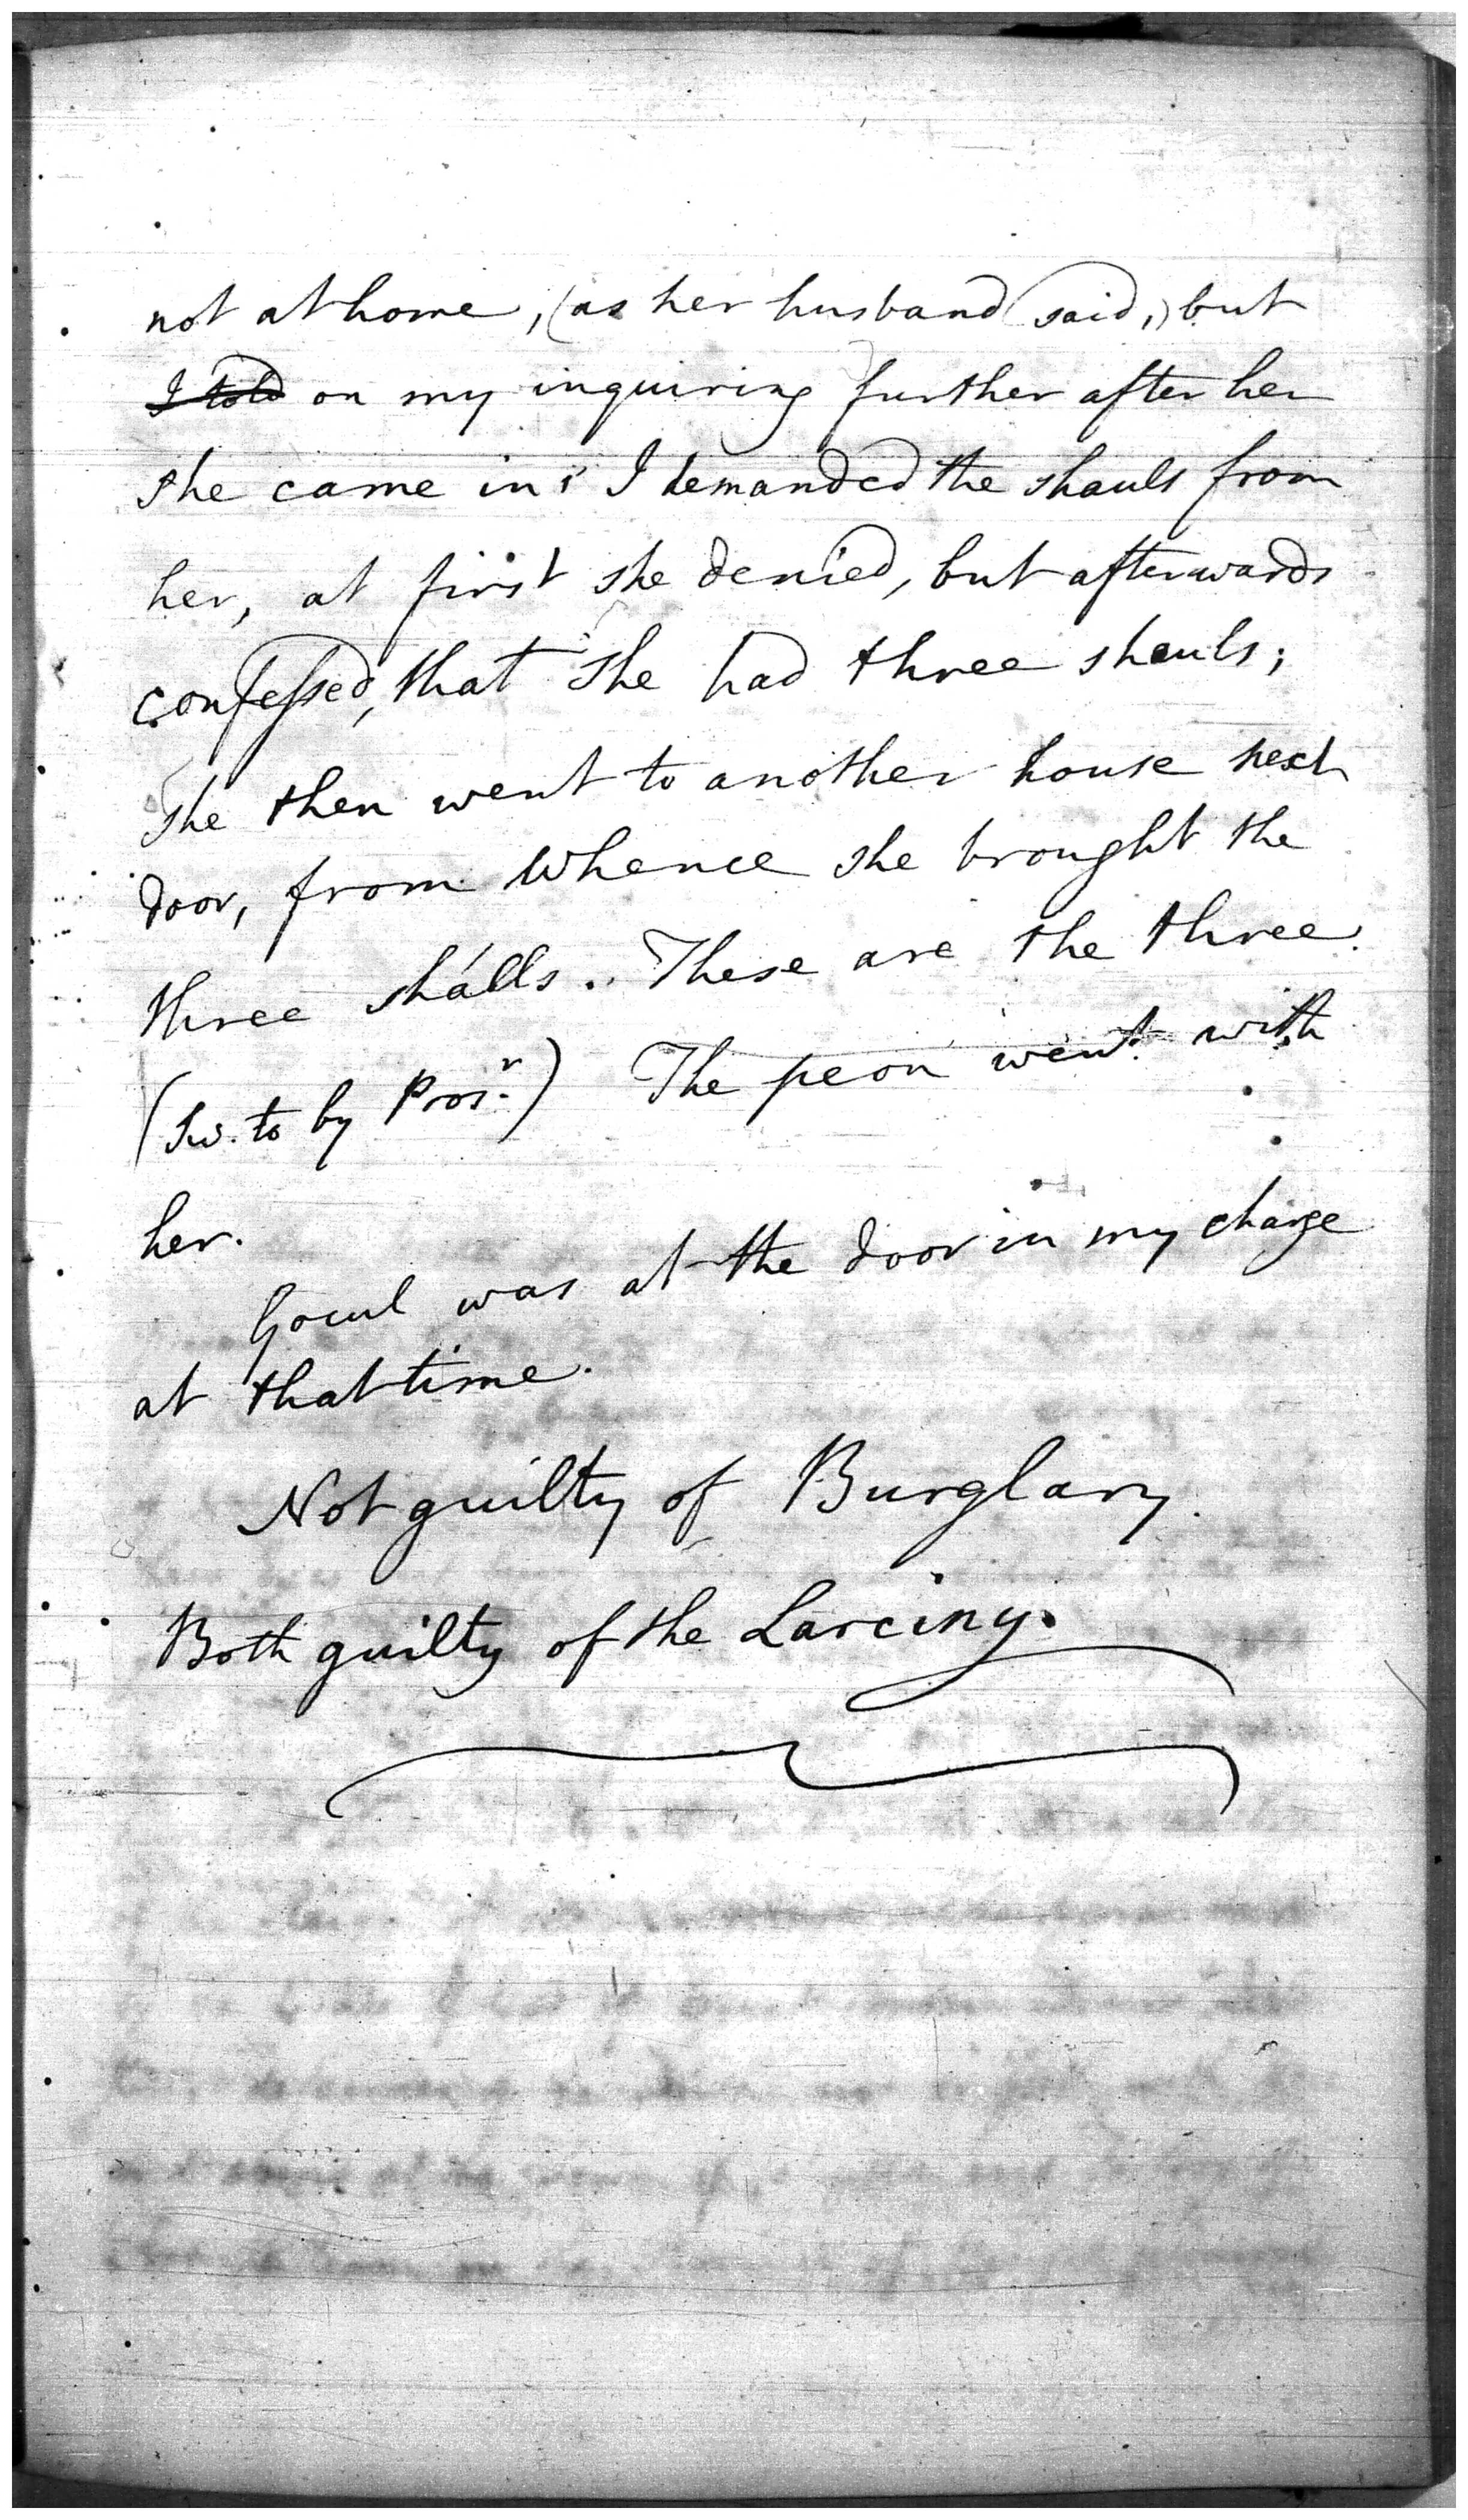 not at home, (as her husband said,) but
I told on my inquiring further after her
she came in; I demanded the shauls from
her, at first she denied, but afterwards
confessed, that she had three shauls;
she then went to another house next
door, from whence she brought the
three shalls. These are the three
(Sw. to by Pros.r) The peon went with
her.
Gocul was at the door in my charge
at that time.
Not guilty of Burglary.
Both guilty of the Larciny.